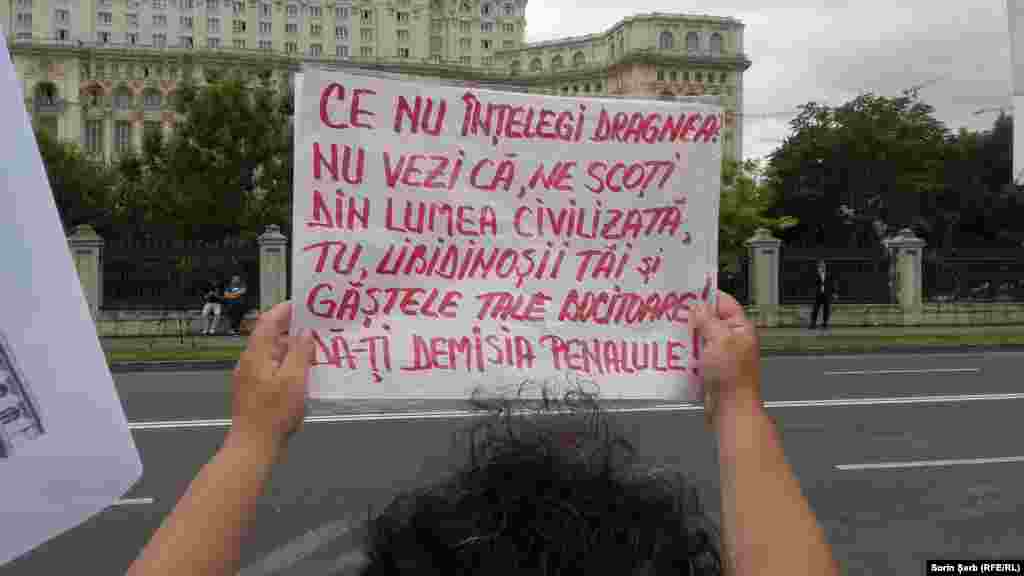 CE NU ÎNȚELEGI DRAGNEA?
NU VEZI CĂ, NE SCOȚI
DIN LUMEA CIVILIZATĂ,
TU, LIBIDINOȘII TĂI ȘI
GĂȘTELE TALE BOCITOARE!
DĂ-ȚI DEMISIA PENALULE!
Sorin Șerb (RFE/RL)